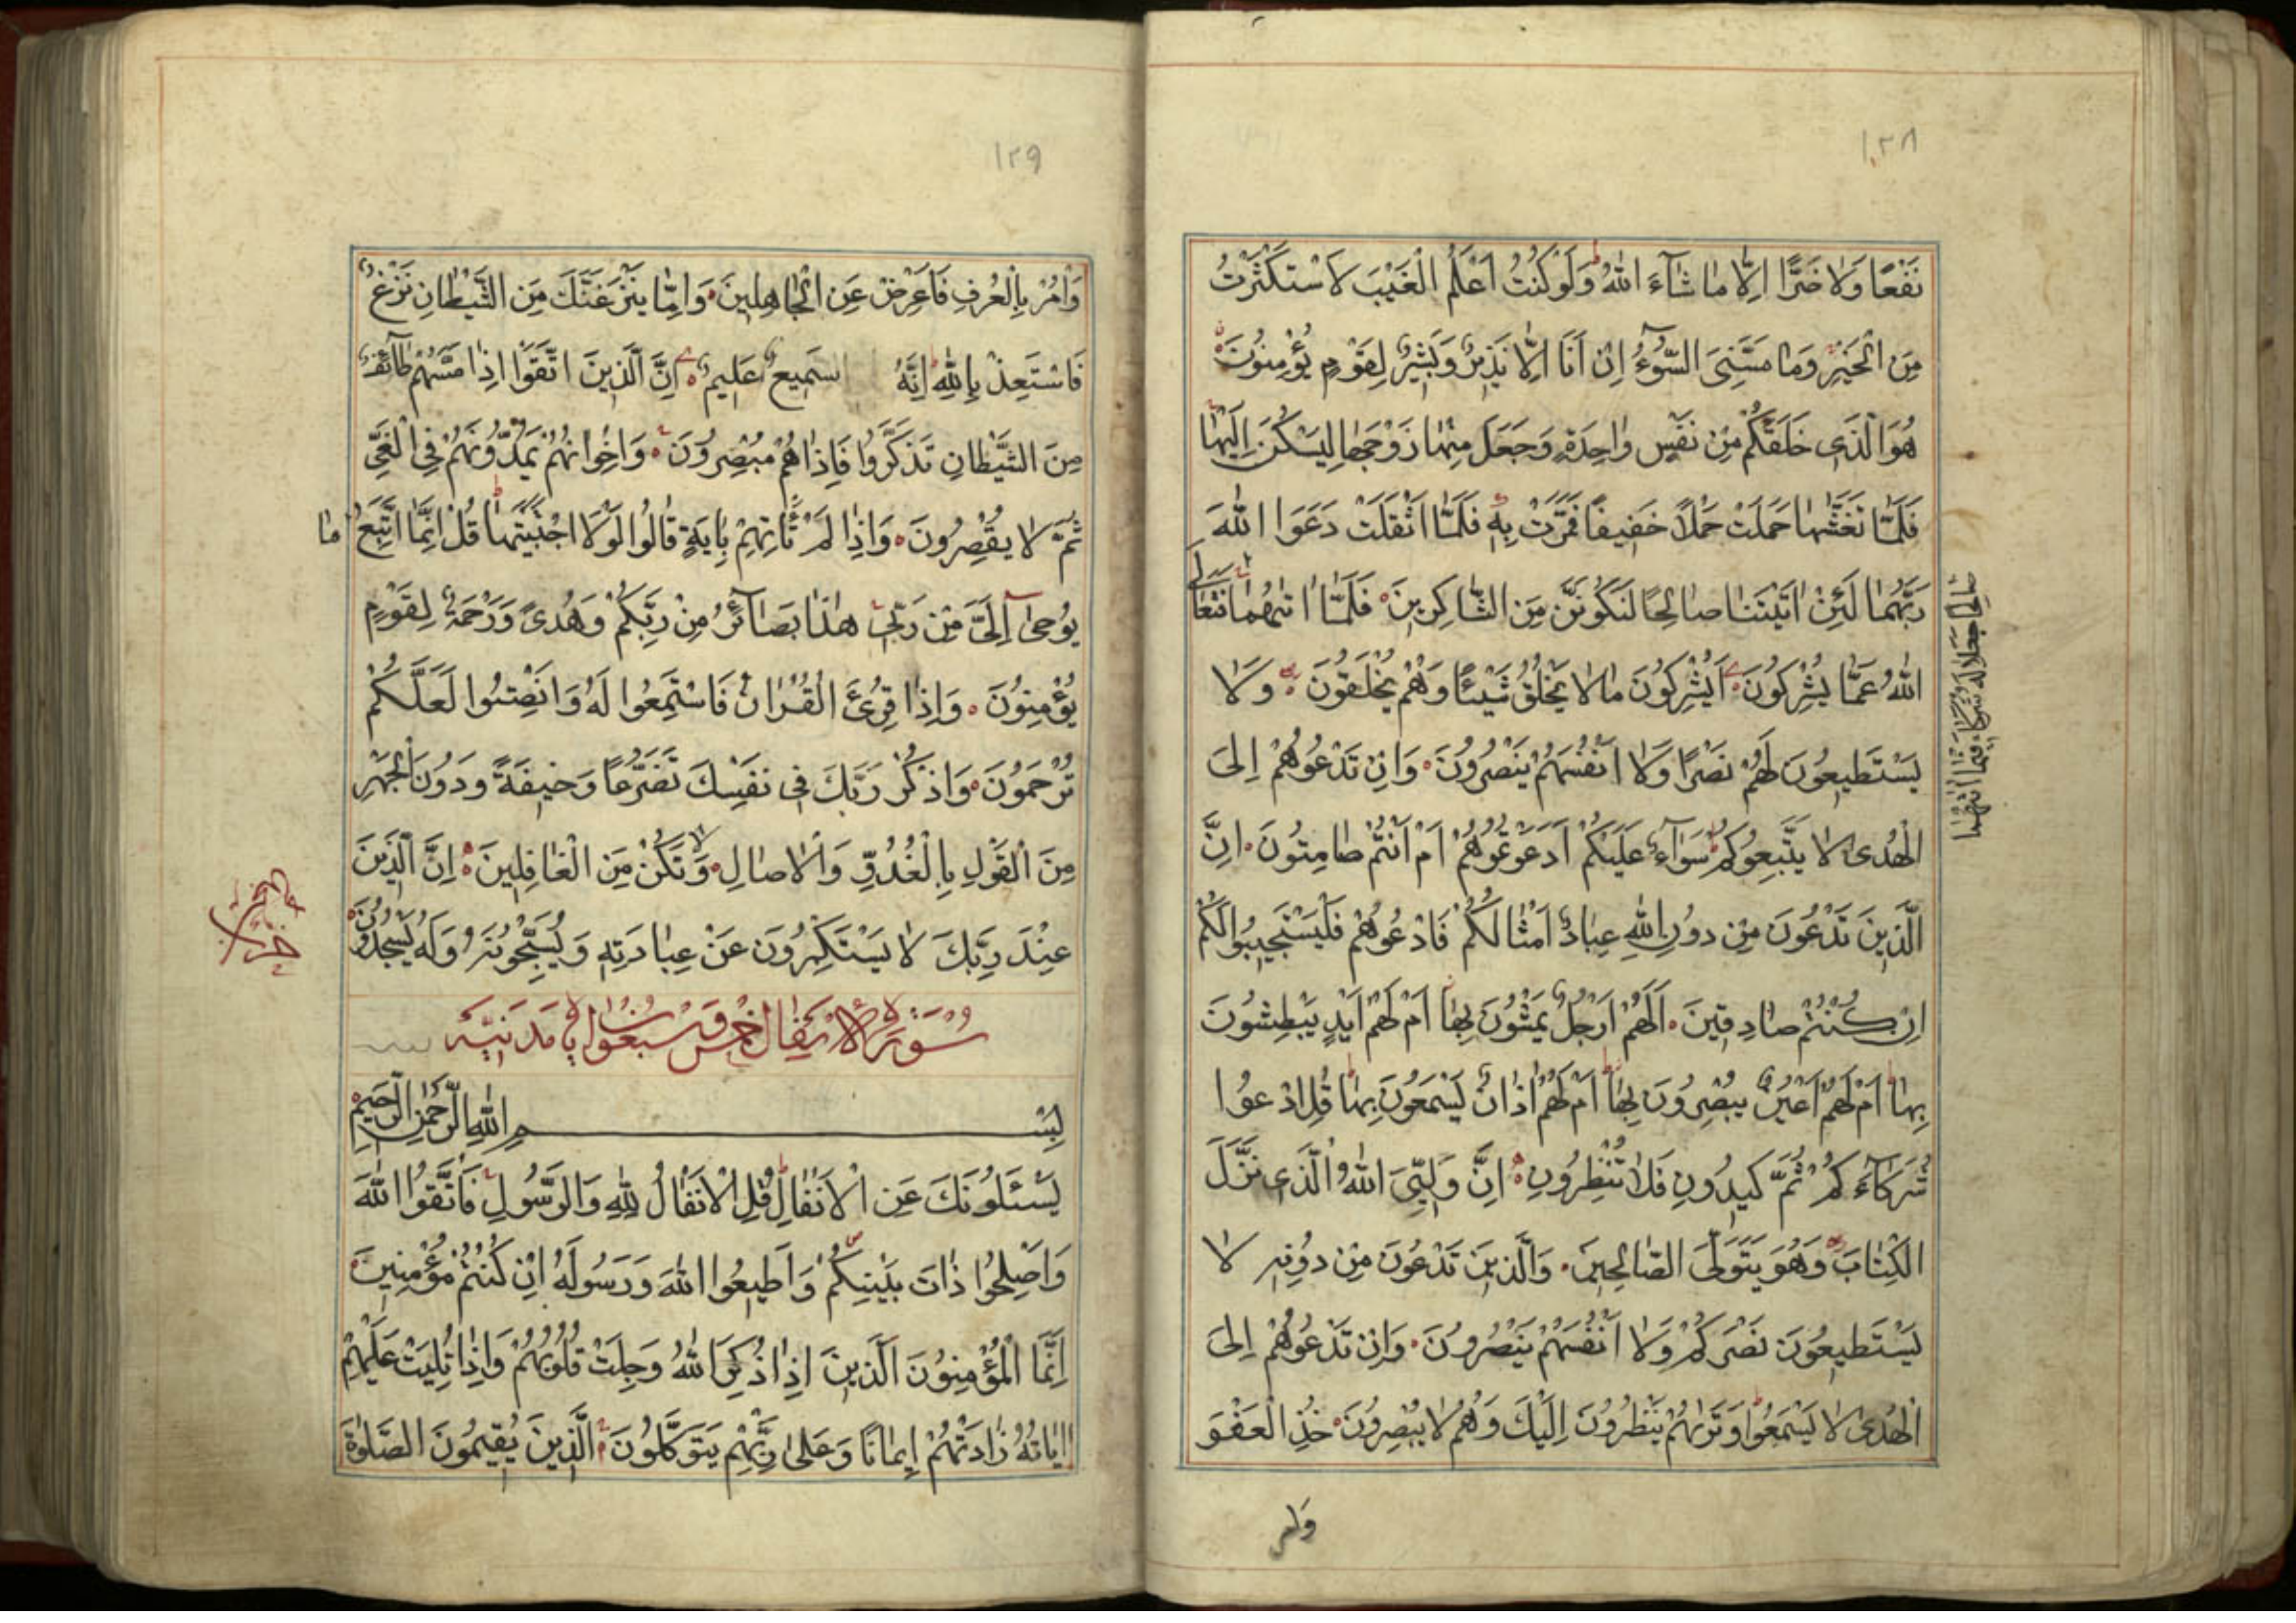 ١٢٨
نَفْعًا وَلَا ضَرًّا اِلَّا مَا شَآءَ اللهُ وَلَوْ كُنْتُ اَعْلَمُ الْغَيْبَ لَاسْتَكْثَرْتُ
مِنَ الْخَيْرِ وَمَا مَسَّنِىَ السُّوٓءُ اِنْ اَنَا اِلَّا نَذِيرٌ وَبَشِيرٌ لِقَوْمٍ يُؤْمِنُونَ
هُوَ الَّذِى خَلَقَكُمْ مِنْ نَفْسٍ وَاحِدَةٍ وَجَعَلَ مِنْهَا زَوْجَهَا لِيَسْكُنَ اِلَيْهَا
فَلَمَّا تَغَشّٰيهَا حَمَلَتْ حَمْلًا خَفِيفًا فَمَرَّتْ بِهِ فَلَمَّا اَثْقَلَتْ دَعَوَا اللهَ
رَبَّهُمَا لَئِنْ اٰتَيْتَنَا صَالِحًا لَنَكُونَنَّ مِنَ الشَّاكِرِينَ فَلَمَّا اٰتٰيهُمَا فَتَعَالَى
صَالِحًا جَعَلَا لَهُ شُرَكَآءَ فِيمَا اٰتٰيهُمَا
اللهُ عَمَّا يُشْرِكُونَ اَيُشْرِكُونَ مَا لَا يَخْلُقُ شَيْئًا وَهُمْ يُخْلَقُونَ وَلَا
يَسْتَطِيعُونَ لَهُمْ نَصْرًا وَلَا اَنْفُسَهُمْ يَنْصُرُونَ وَاِنْ تَدْعُوهُمْ اِلَى
الْهُدٰى لَا يَتَّبِعُوكُمْ سَوَآءٌ عَلَيْكُمْ اَدَعَوْتُمُوهُمْ اَمْ اَنْتُمْ صَامِتُونَ اِنَّ
الَّذِينَ تَدْعُونَ مِنْ دُونِ اللهِ عِبَادٌ اَمْثَالُكُمْ فَادْعُوهُمْ فَلْيَسْتَجِيبُوا لَكُمْ
اِنْ كُنْتُمْ صَادِقِينَ اَلَهُمْ اَرْجُلٌ يَمْشُونَ بِهَا اَمْ لَهُمْ اَيْدٍ يَبْطِشُونَ
بِهَا اَمْ لَهُمْ اَعْيُنٌ يُبْصِرُونَ بِهَا اَمْ لَهُمْ اٰذَانٌ يَسْمَعُونَ بِهَا قُلِ ادْعُوا
شُرَكَآءَكُمْ ثُمَّ كِيدُونِ فَلَا تُنْظِرُونِ اِنَّ وَلِيِّىَ اللهُ الَّذِى نَزَّلَ
الْكِتَابَ وَهُوَ يَتَوَلَّى الصَّالِحِينَ وَالَّذِينَ تَدْعُونَ مِنْ دُونِهِ لَا
يَسْتَطِيعُونَ نَصْرَكُمْ وَلَا اَنْفُسَهُمْ يَنْصُرُونَ وَاِنْ تَدْعُوهُمْ اِلَى
الْهُدٰى لَا يَسْمَعُوا وَتَرٰيهُمْ يَنْظُرُونَ اِلَيْكَ وَهُمْ لَا يُبْصِرُونَ خُذِ الْعَفْوَ
وأمر
١٢٩
وَأْمُرْ بِالْعُرْفِ فَاَعْرِضْ عَنِ الْجَاهِلِينَ وَاِمَّا يَنْزَغَنَّكَ مِنَ الشَّيْطَانِ نَزْغٌ
فَاسْتَعِذْ بِاللهِ اِنَّهُ سَمِيعٌ عَلِيمٌ اِنَّ الَّذِينَ اتَّقَوْا اِذَا مَسَّهُمْ طَآئِفٌ
مِنَ الشَّيْطَانِ تَذَكَّرُوا فَاِذَا هُمْ مُبْصِرُونَ وَاِخْوَانُهُمْ يَمُدُّونَهُمْ فِى الْغَىِّ
ثُمَّ لَا يُقْصِرُونَ وَاِذَا لَمْ تَأْتِهِمْ بِاٰيَةٍ قَالُوا لَوْلَا اجْتَبَيْتَهَا قُلْ اِنَّمَا اَتَّبِعُ مَا
يُوحٰٓى اِلَىَّ مِنْ رَبِّى هٰذَا بَصَآئِرُ مِنْ رَبِّكُمْ وَهُدًى وَرَحْمَةٌ لِقَوْمٍ
يُؤْمِنُونَ وَاِذَا قُرِئَ الْقُرْاٰنُ فَاسْتَمِعُوا لَهُ وَاَنْصِتُوا لَعَلَّكُمْ
تُرْحَمُونَ وَاذْكُرْ رَبَّكَ فِى نَفْسِكَ تَضَرُّعًا وَخِيفَةً وَدُونَ الْجَهْرِ
مِنَ الْقَوْلِ بِالْغُدُوِّ وَالْاٰصَالِ وَلَا تَكُنْ مِنَ الْغَافِلِينَ اِنَّ الَّذِينَ
عِنْدَ رَبِّكَ لَا يَسْتَكْبِرُونَ عَنْ عِبَادَتِهِ وَيُسَبِّحُونَهُ وَلَهُ يَسْجُدُونَ
سُورَةُ الْاَنْفَالِ خَمْسٌ وَسَبْعُونَ اٰيَةً مَدَنِيَّة
بِسْمِ اللهِ الرَّحْمٰنِ الرَّحِيمِ
يَسْـَٔلُونَكَ عَنِ الْاَنْفَالِ قُلِ الْاَنْفَالُ لِلهِ وَالرَّسُولِ فَاتَّقُوا اللهَ
وَاَصْلِحُوا ذَاتَ بَيْنِكُمْ وَاَطِيعُوا اللهَ وَرَسُولَهُ اِنْ كُنْتُمْ مُؤْمِنِينَ
اِنَّمَا الْمُؤْمِنُونَ الَّذِينَ اِذَا ذُكِرَ اللهُ وَجِلَتْ قُلُوبُهُمْ وَاِذَا تُلِيَتْ عَلَيْهِمْ
اٰيَاتُهُ زَادَتْهُمْ اِيمَانًا وَعَلٰى رَبِّهِمْ يَتَوَكَّلُونَ الَّذِينَ يُقِيمُونَ الصَّلٰوةَ